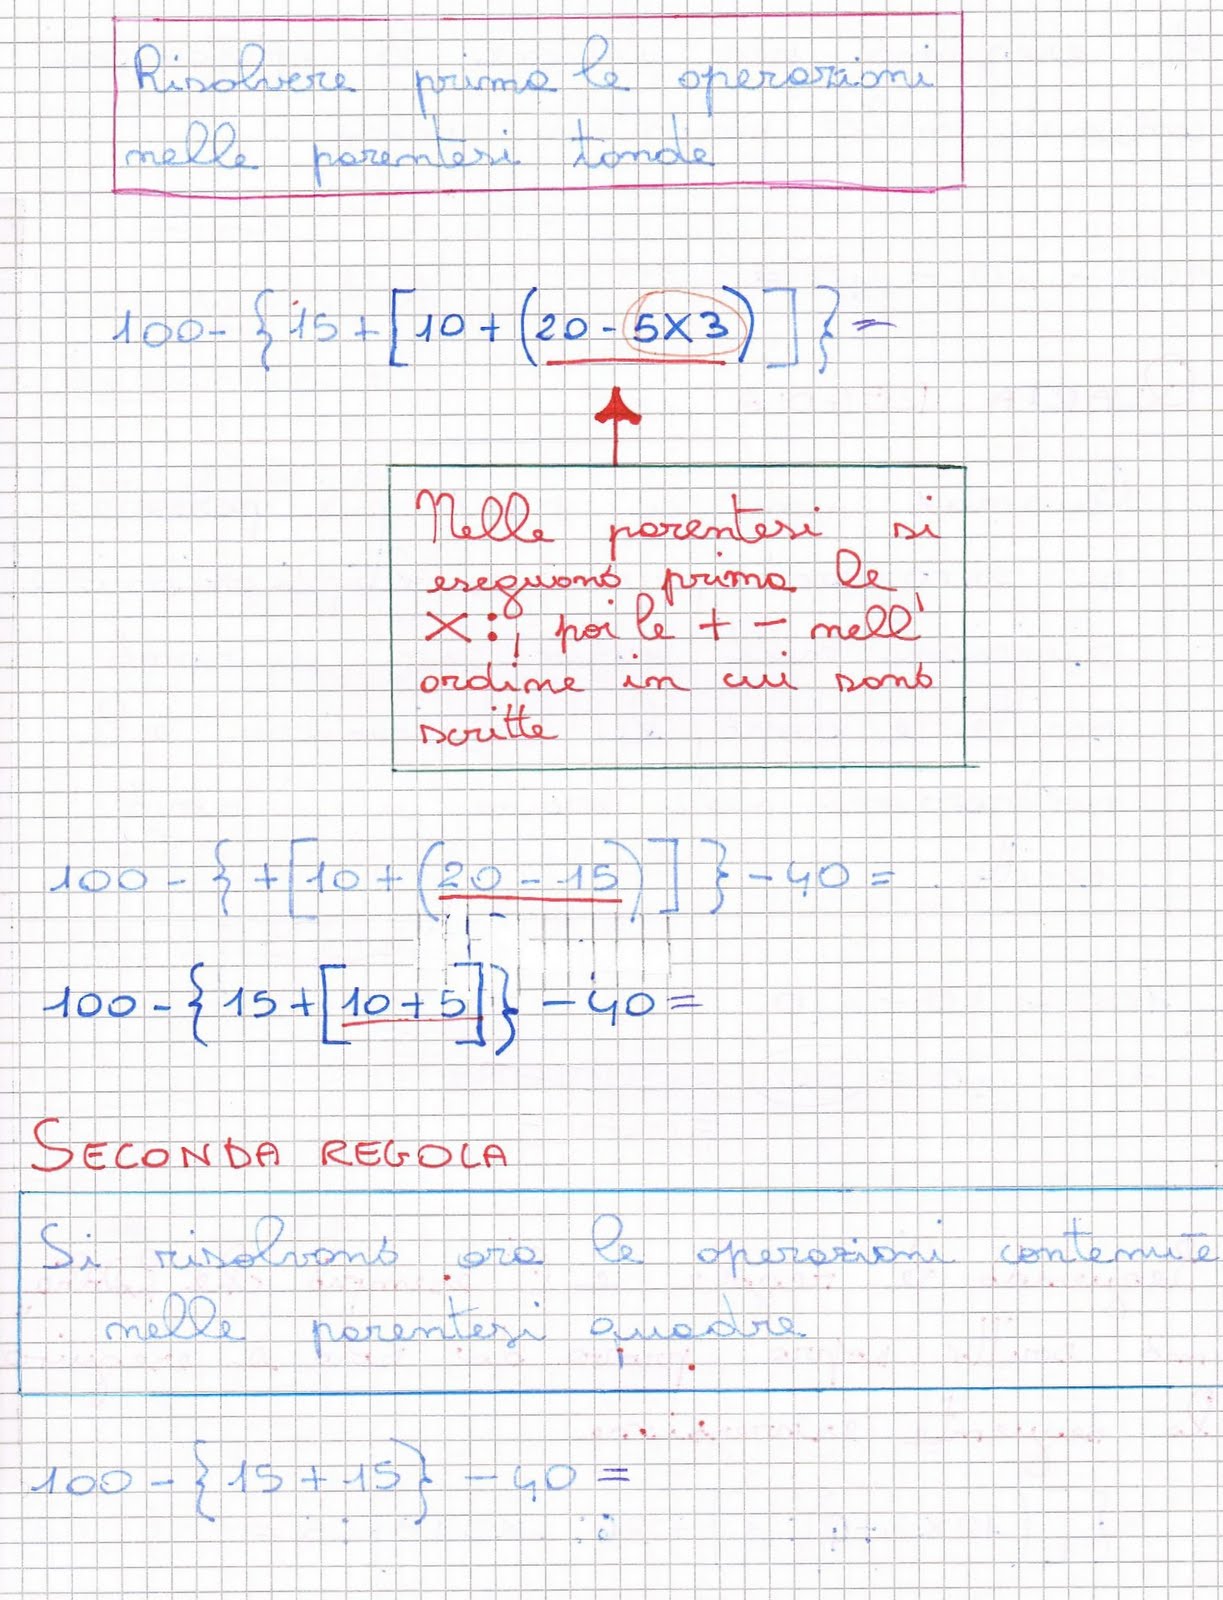 Risolvere prima le operazioni
nelle parentesi tonde
100-{15+[10+(20-5X3)]}=
Nelle parentesi si
eseguono prima le
X:, poi le + - nell'
ordine in cui sono
scritte
100-{+[10+(20-15)]}-40=
100-{15+[10+5]}-40=
SECONDA REGOLA
Si risolvono ora le operazioni contenute
nelle parentesi quadre
100-{15+15}-40=